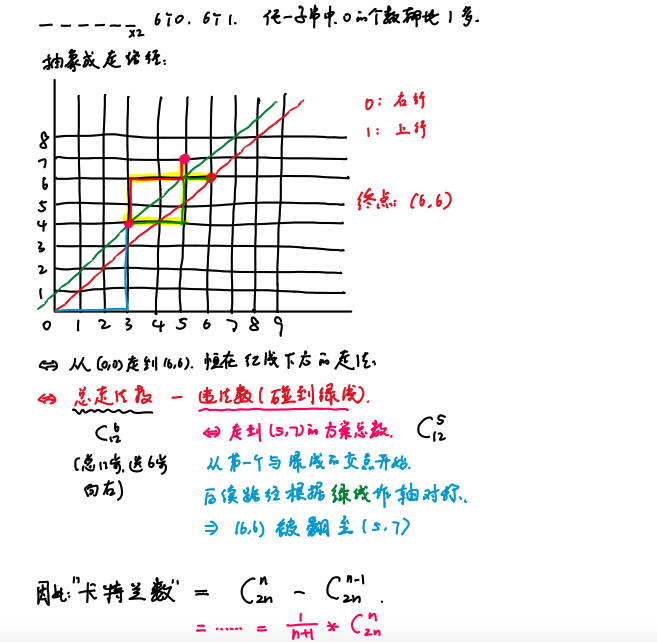 _ _ _ _ _ _ x2 6个0. 6个1. 任一子串中, 0的个数都比1多.
抽象成走路径:
0: 右行
1: 上行
终点: (6,6)
8
7
6
5
4
3
2
1
0 1 2 3 4 5 6 7 8 9
⇔ 从(0,0)走到(6,6). 恒在红线下方的走法.
⇔ 总走法数 - 违法数(碰到绿线).
C₁₂⁶
⇔ 走到(5,7)的方案总数. C₁₂⁵
(总12步, 选6步向右)
从第一个与绿线的交点开始.
后续路径根据绿线作轴对称.
⇒ (6,6) 被翻至(5,7)
因此:"卡特兰数" = C₂ₙⁿ - C₂ₙⁿ⁻¹.
= …… = 1/(n+1) * C₂ₙⁿ